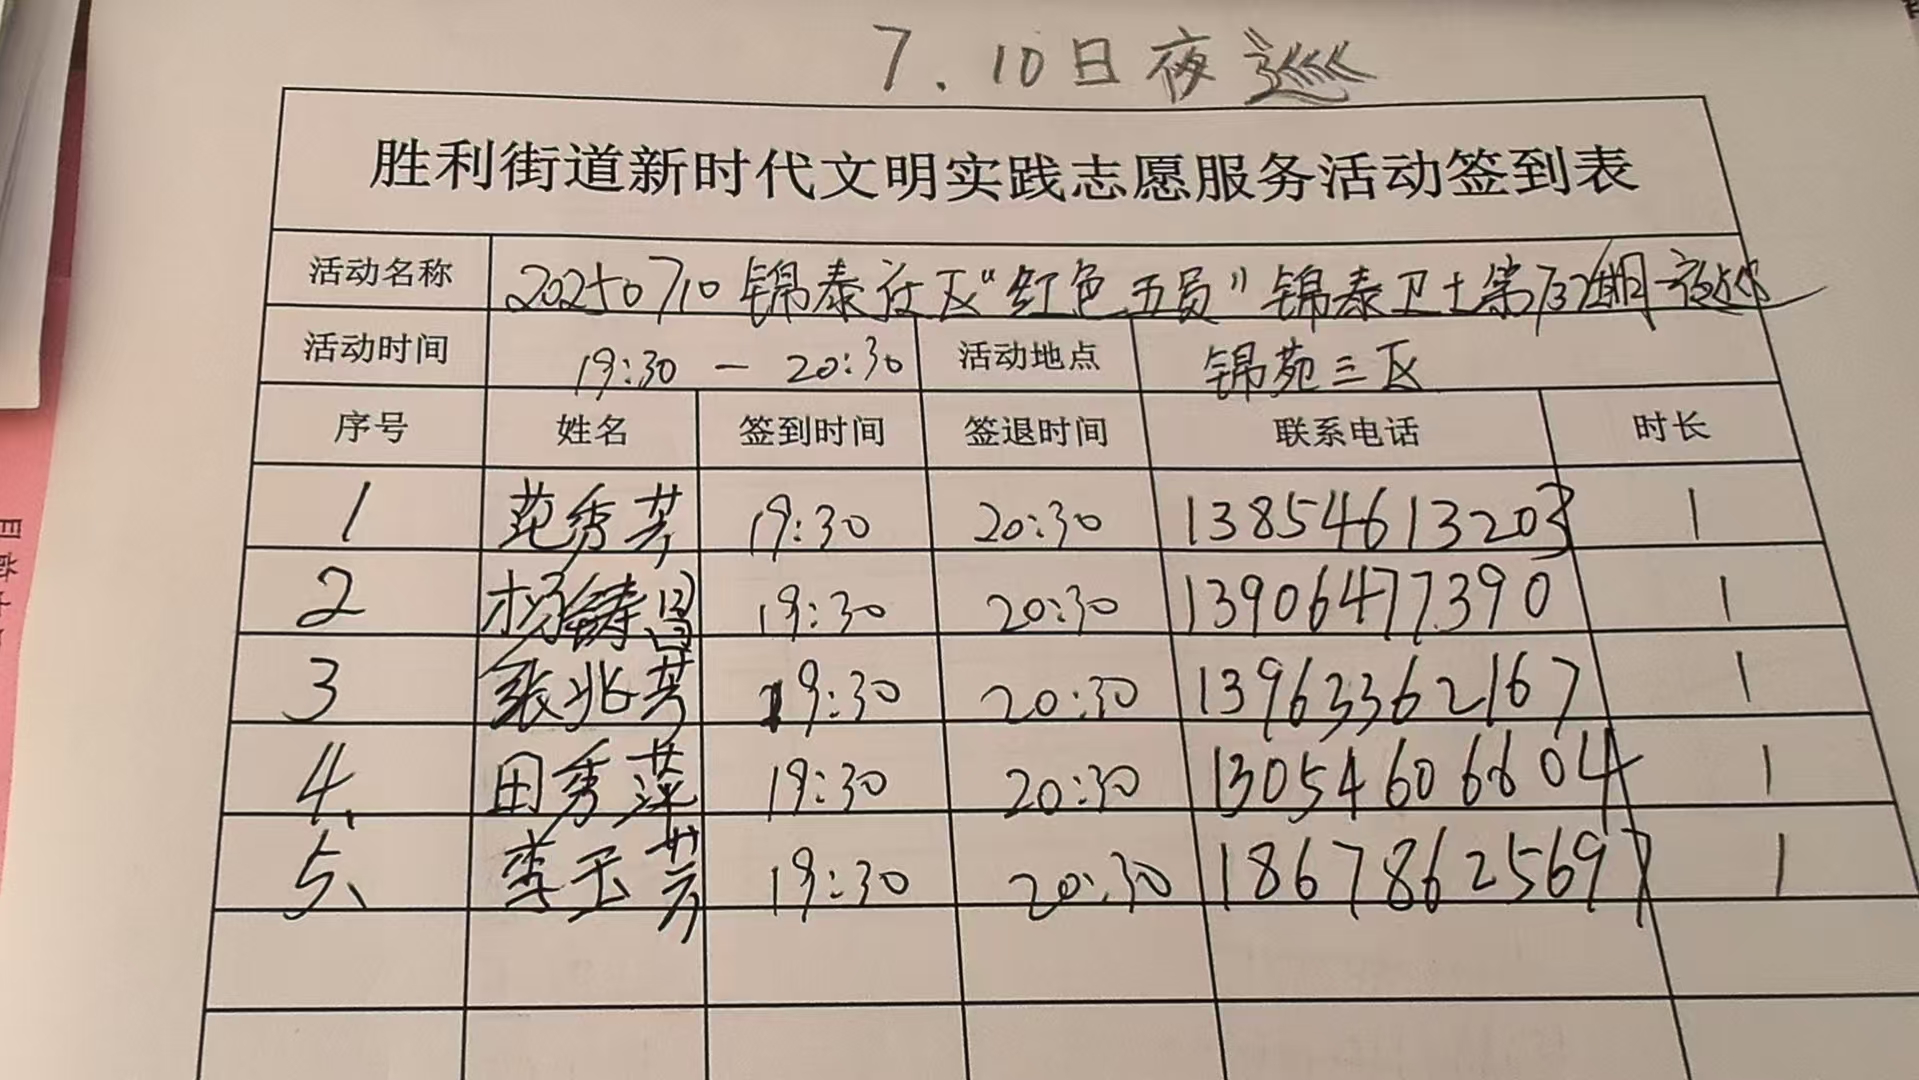 7.10日夜巡
胜利街道新时代文明实践志愿服务活动签到表
活动名称 20250710锦泰社区“红色五员”锦泰卫士第732期-夜巡
活动时间 19:30-20:30 活动地点 锦苑三区
序号 姓名 签到时间 签退时间 联系电话 时长
1 范秀芳 19:30 20:30 13854613203 1
2 杨铸昌 19:30 20:30 13906477390 1
3 张兆芳 19:30 20:30 13963362167 1
4、 田秀萍 19:30 20:30 13054606604 1
5、 李玉芳 19:30 20:30 18678625697 1